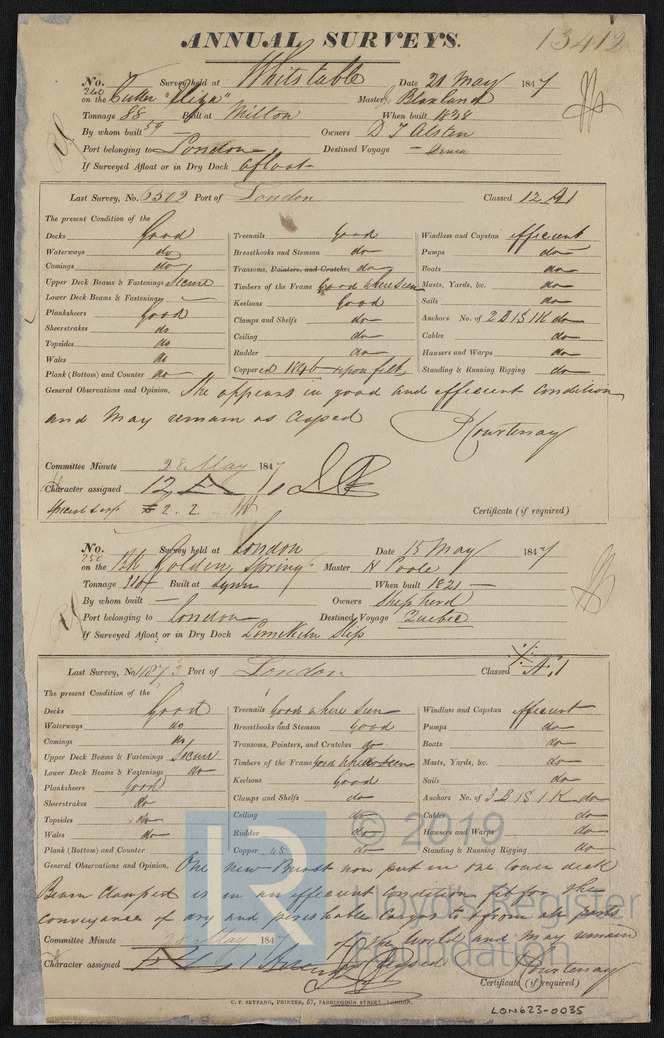 ANNUAL SURVEYS.
13412
No. 260 Survey held at Whitstable Date 21 May 1847
on the Cutter "Eliza" Master J Blaxland
Tonnage 88 59 Built at Milton When built 1838
By whom built Owners D T Alston
Port belonging to London Destined Voyage —
If Surveyed Afloat or in Dry Dock afloat
Last Survey, No. 6502 Port of London Classed 12 A 1
The present Condition of the
Decks Good Treenails Good Windlass and Capstan efficient
Waterways do Breasthooks and Stemson do Pumps do
Comings do Transoms, Pointers, and Crutches do Boats do
Upper Deck Beams & Fastenings Secure Timbers of the Frame Good where seen Masts, Yards, &c. do
Lower Deck Beams & Fastenings — Keelsons Good Sails do
Planksheers Good Clamps and Shelfs do Anchors No. of 2 B 1 S 1 K do
Sheerstrakes do Ceiling do Cables do
Topsides do Rudder do Hawsers and Warps do
Wales do Coppered 1846 upon felt Standing & Running Rigging do
Plank (Bottom) and Counter do
General Observations and Opinion, She appears in good and efficient condition
and may remain as classed Courtenay
Committee Minute 28 May 1847
Character assigned 12 A 1
Special Surv £ 2. 2. Certificate (if required)
No. 250 Survey held at London Date 15 May 1847
on the Bk Golden Spring Master H Poole
Tonnage 110 Built at Lynn When built 1821 —
By whom built — Owners Shepherd
Port belonging to London Destined Voyage Quebec
If Surveyed Afloat or in Dry Dock Limekiln Slip
Last Survey, No. Port of London Classed Æ 1
The present Condition of the
Decks Good Treenails Good where seen Windlass and Capstan Efficient
Waterways do Breasthooks and Stemson Good Pumps do
Comings do Transoms, Pointers, and Crutches do Boats do
Upper Deck Beams & Fastenings Secure Timbers of the Frame Good where seen Masts, Yards, &c. do
Lower Deck Beams & Fastenings do Keelsons Good Sails do
Planksheers Good Clamps and Shelfs do Anchors No. of 3 B 1 S 1 K do
Sheerstrakes do Ceiling do Cables do
Topsides do Rudder do Hawsers and Warps do
Wales do Copper 45 do Standing & Running Rigging do
Plank (Bottom) and Counter
General Observations and Opinion, One new Breast now put in one lower deck
Beam clamped is in an efficient condition fit for the
conveyance of dry and perishable cargos to & from all parts
of the World and may remain
Committee Minute 28 May 1847
Character assigned Æ 1 classed Courtenay
Certificate (if required)
C. F. SEYFANG, PRINTER, 57, FARRINGDON STREET, LONDON.
LON623-0035
LR
© 2019
Lloyd's Register
Foundation